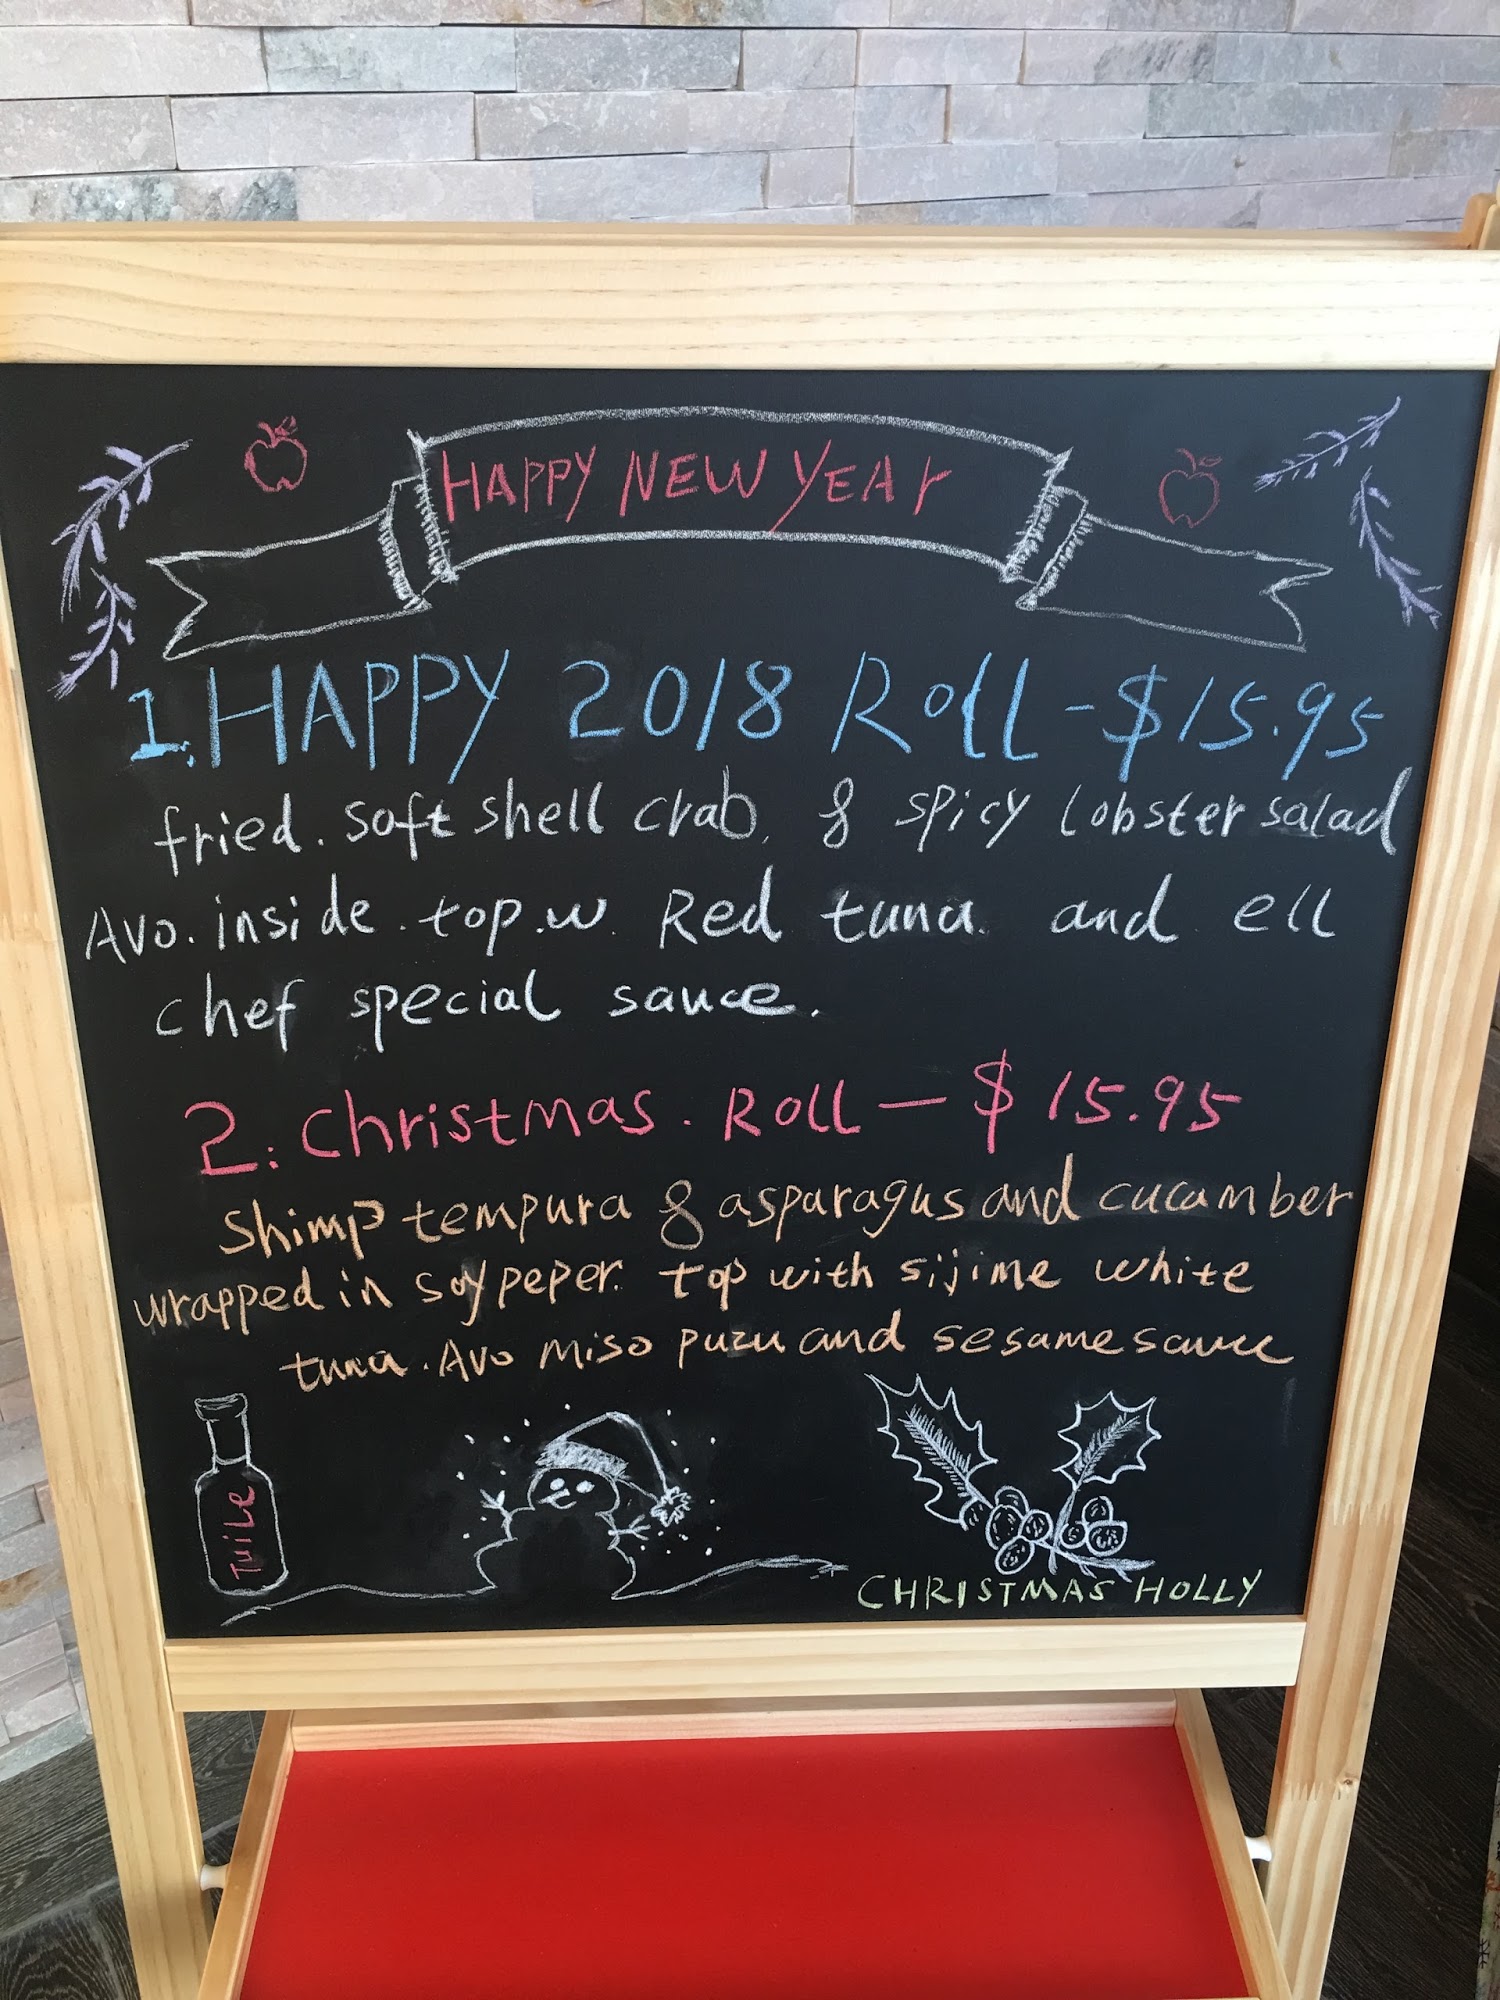 HAPPY NEW YEAr
1. HAPPY 2018 Roll - $15.95
fried. soft shell crab. & spicy lobster salad
Avo. inside. top. w. Red tuna. and ell
chef special sauce.
2. christmas. Roll — $15.95
Shimp tempura & asparagus and cucamber
wrapped in soy peper. top with sijime white
tuna. Avo miso puzu and sesame sauce
TuiLe
CHRISTMAS HOLLY